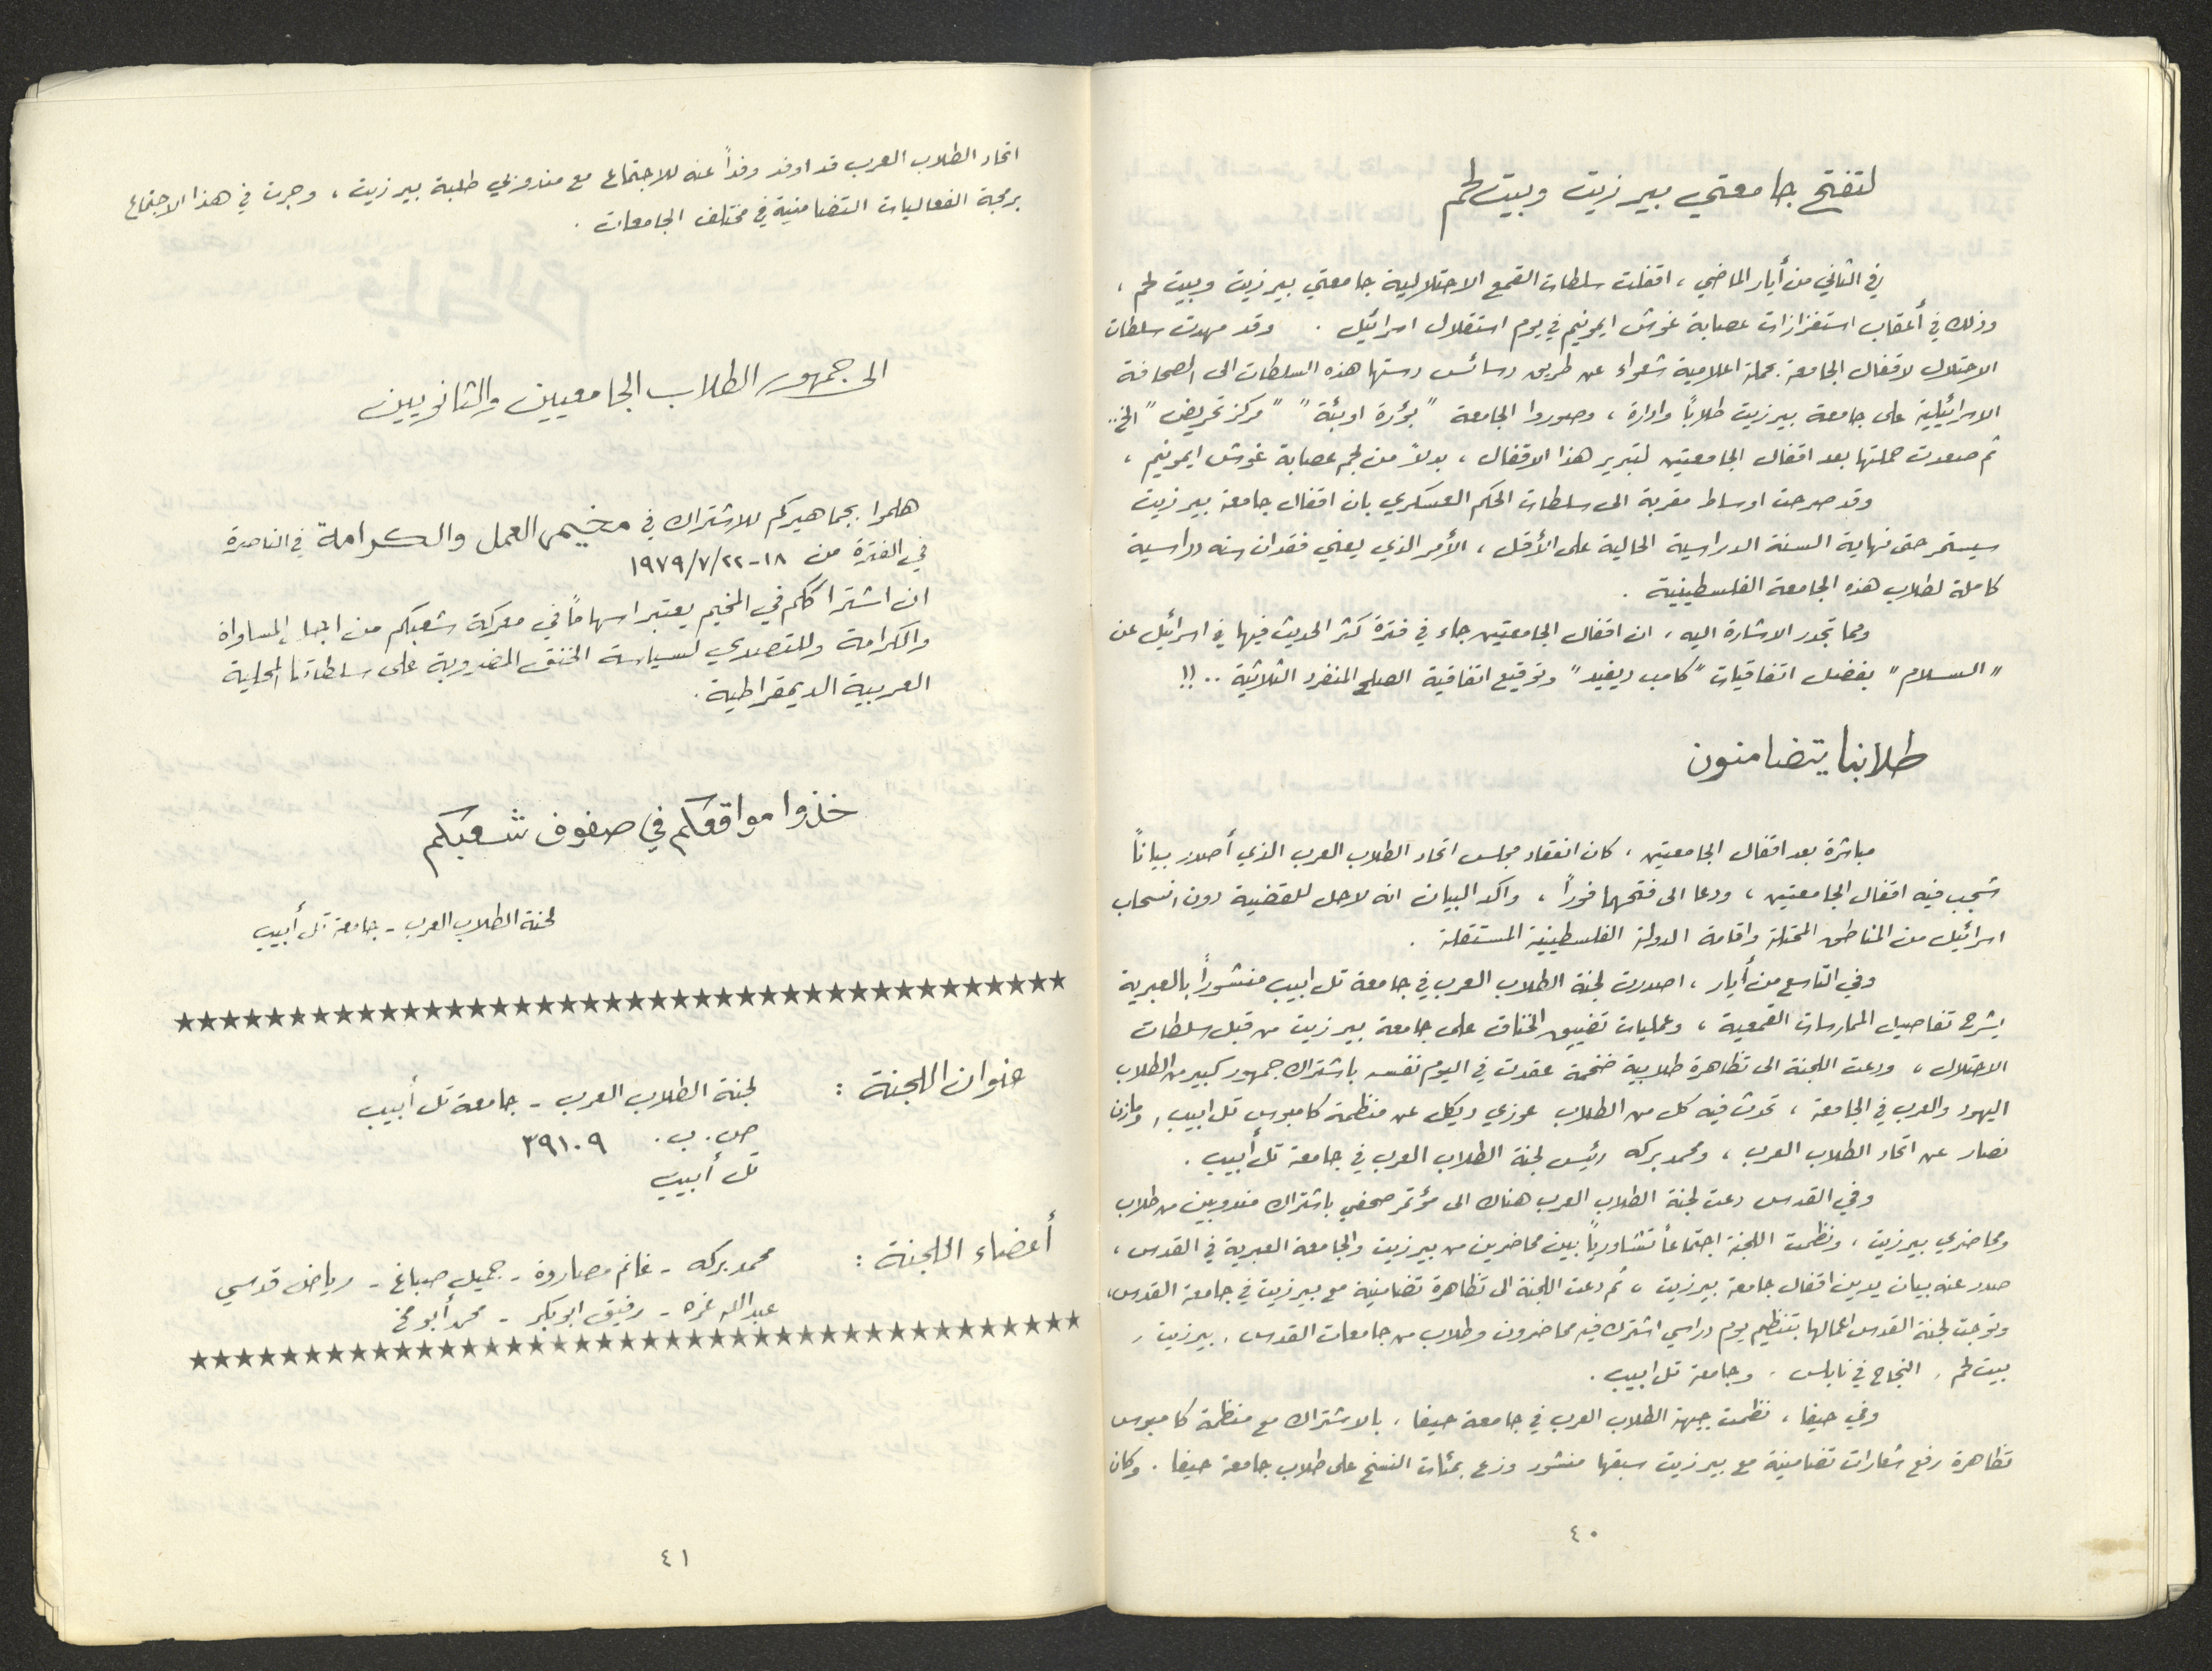 لتفتح جامعتي بيرزيت وبيت لحم
في الثاني من أيار الماضي، اقفلت سلطات القمع الاحتلالية جامعتي بيرزيت وبيت لحم،
وذلك في أعقاب استفزازات عصابة غوش ايمونيم في يوم استقلال اسرائيل. وقد مهدت سلطات
الاحتلال لاقفال الجامعة بحملة اعلامية شعواء عن طريق دسائس دستها هذه السلطات الى الصحافة
الاسرائيلية على جامعة بيرزيت طلاباً وادارة، وصوروا الجامعة "بؤرة اوبئة" "مركز تحريض" الخ..
ثم صعدت حملتها بعد اقفال الجامعتين لتبرير هذا الاقفال، بدلاً من لجم عصابة غوش ايمونيم،
وقد صرحت اوساط مقربة الى سلطات الحكم العسكري بان اقفال جامعة بيرزيت
سيستمر حتى نهاية السنة الدراسية الحالية على الأقل، الأمر الذي يعني فقدان سنه دراسية
كاملة لطلاب هذه الجامعة الفلسطينية.
ومما تجدر الاشارة اليه، ان اقفال الجامعتين جاء في فترة كثر الحديث فيها في اسرائيل عن
"السلام" بفضل اتفاقيات "كامب ديفيد" وتوقيع اتفاقية الصلح المنفرد الثلاثية..!!
طلابنا يتضامنون
مباشرة بعد اقفال الجامعتين، كان انعقاد مجلس اتحاد الطلاب العرب الذي أصدر بياناً
شجب فيه اقفال الجامعتين، ودعا الى فتحهما فوراً، واكد البيان انه لا حل للقضية دون انسحاب
اسرائيل من المناطق المحتلة واقامة الدولة الفلسطينية المستقلة.
وفي التاسع من أيار، اصدرت لجنة الطلاب العرب في جامعة تل ابيب منشوراً بالعبرية
يشرح تفاصيل الممارسات القمعية، وعمليات تضييق الخناق على جامعة بيرزيت من قبل سلطات
الاحتلال، ودعت اللجنة الى تظاهرة طلابية ضخمة عقدت في اليوم نفسه باشتراك جمهور كبير من الطلاب
اليهود والعرب في الجامعة، تحدث فيه كل من الطلاب عوزي ديكل عن منظمة كامبوس تل ابيب، ومازن
نصار عن اتحاد الطلاب العرب، ومحمد بركه رئيس لجنة الطلاب العرب في جامعة تل أبيب.
وفي القدس دعت لجنة الطلاب العرب هناك الى مؤتمر صحفي باشتراك مندوبين من طلاب
ومحاضري بيرزيت، ونظمت اللجنة اجتماعاً تشاورياً بين محاضرين من بيرزيت والجامعة العبرية في القدس،
صدر عنه بيان يدين اقفال جامعة بيرزيت، ثم دعت اللجنة الى تظاهرة تضامنية مع بيرزيت في جامعة القدس،
وتوجت لجنة القدس اعمالها بتنظيم يوم دراسي اشترك فيه محاضرون وطلاب من جامعات القدس، بيرزيت،
بيت لحم، النجاح في نابلس، وجامعة تل ابيب.
وفي حيفا، نظمت جبهة الطلاب العرب في جامعة حيفا، بالاشتراك مع منظمة كامبوس
تظاهرة رفع شعارات تضامنية مع بيرزيت سبقها منشور وزع بمئات النسخ على طلاب جامعة حيفا. وكان
٤٠
اتحاد الطلاب العرب قد اوفد وفداً عنه للاجتماع مع مندوبي طلبة بيرزيت، وجرت في هذا الاجتماع
برمجة الفعاليات التضامنية في مختلف الجامعات.
الى جمهور الطلاب الجامعيين والثانويين
هلموا بجماهيركم للاشتراك في مخيم العمل والكرامة في الناصرة
في الفترة من ١٨-٢٢/٧/١٩٧٩
ان اشتراككم في المخيم يعتبر اسهاماً في معركة شعبكم من اجل المساواة
والكرامة وللتصدي لسياسة الخنق المضروبة على سلطاتنا المحلية
العربية الديمقراطية.
خذوا مواقعكم في صفوف شعبكم
لجنة الطلاب العرب - جامعة تل أبيب
★★★★★★★★★★★★★★★★★★★★★★★★★★★★★★★★★★★★★★
عنوان اللجنة: لجنة الطلاب العرب - جامعة تل أبيب
ص.ب. ٣٩١٠٩
تل أبيب
أعضاء اللجنة: محمد بركه - غانم مصاروة - جميل صباغ - رياض قدسي
عبدالله غره - رفيق ابوبكر - محمد أبو مخ
★★★★★★★★★★★★★★★★★★★★★★★★★★★★★★★★★★★★★★
٤١